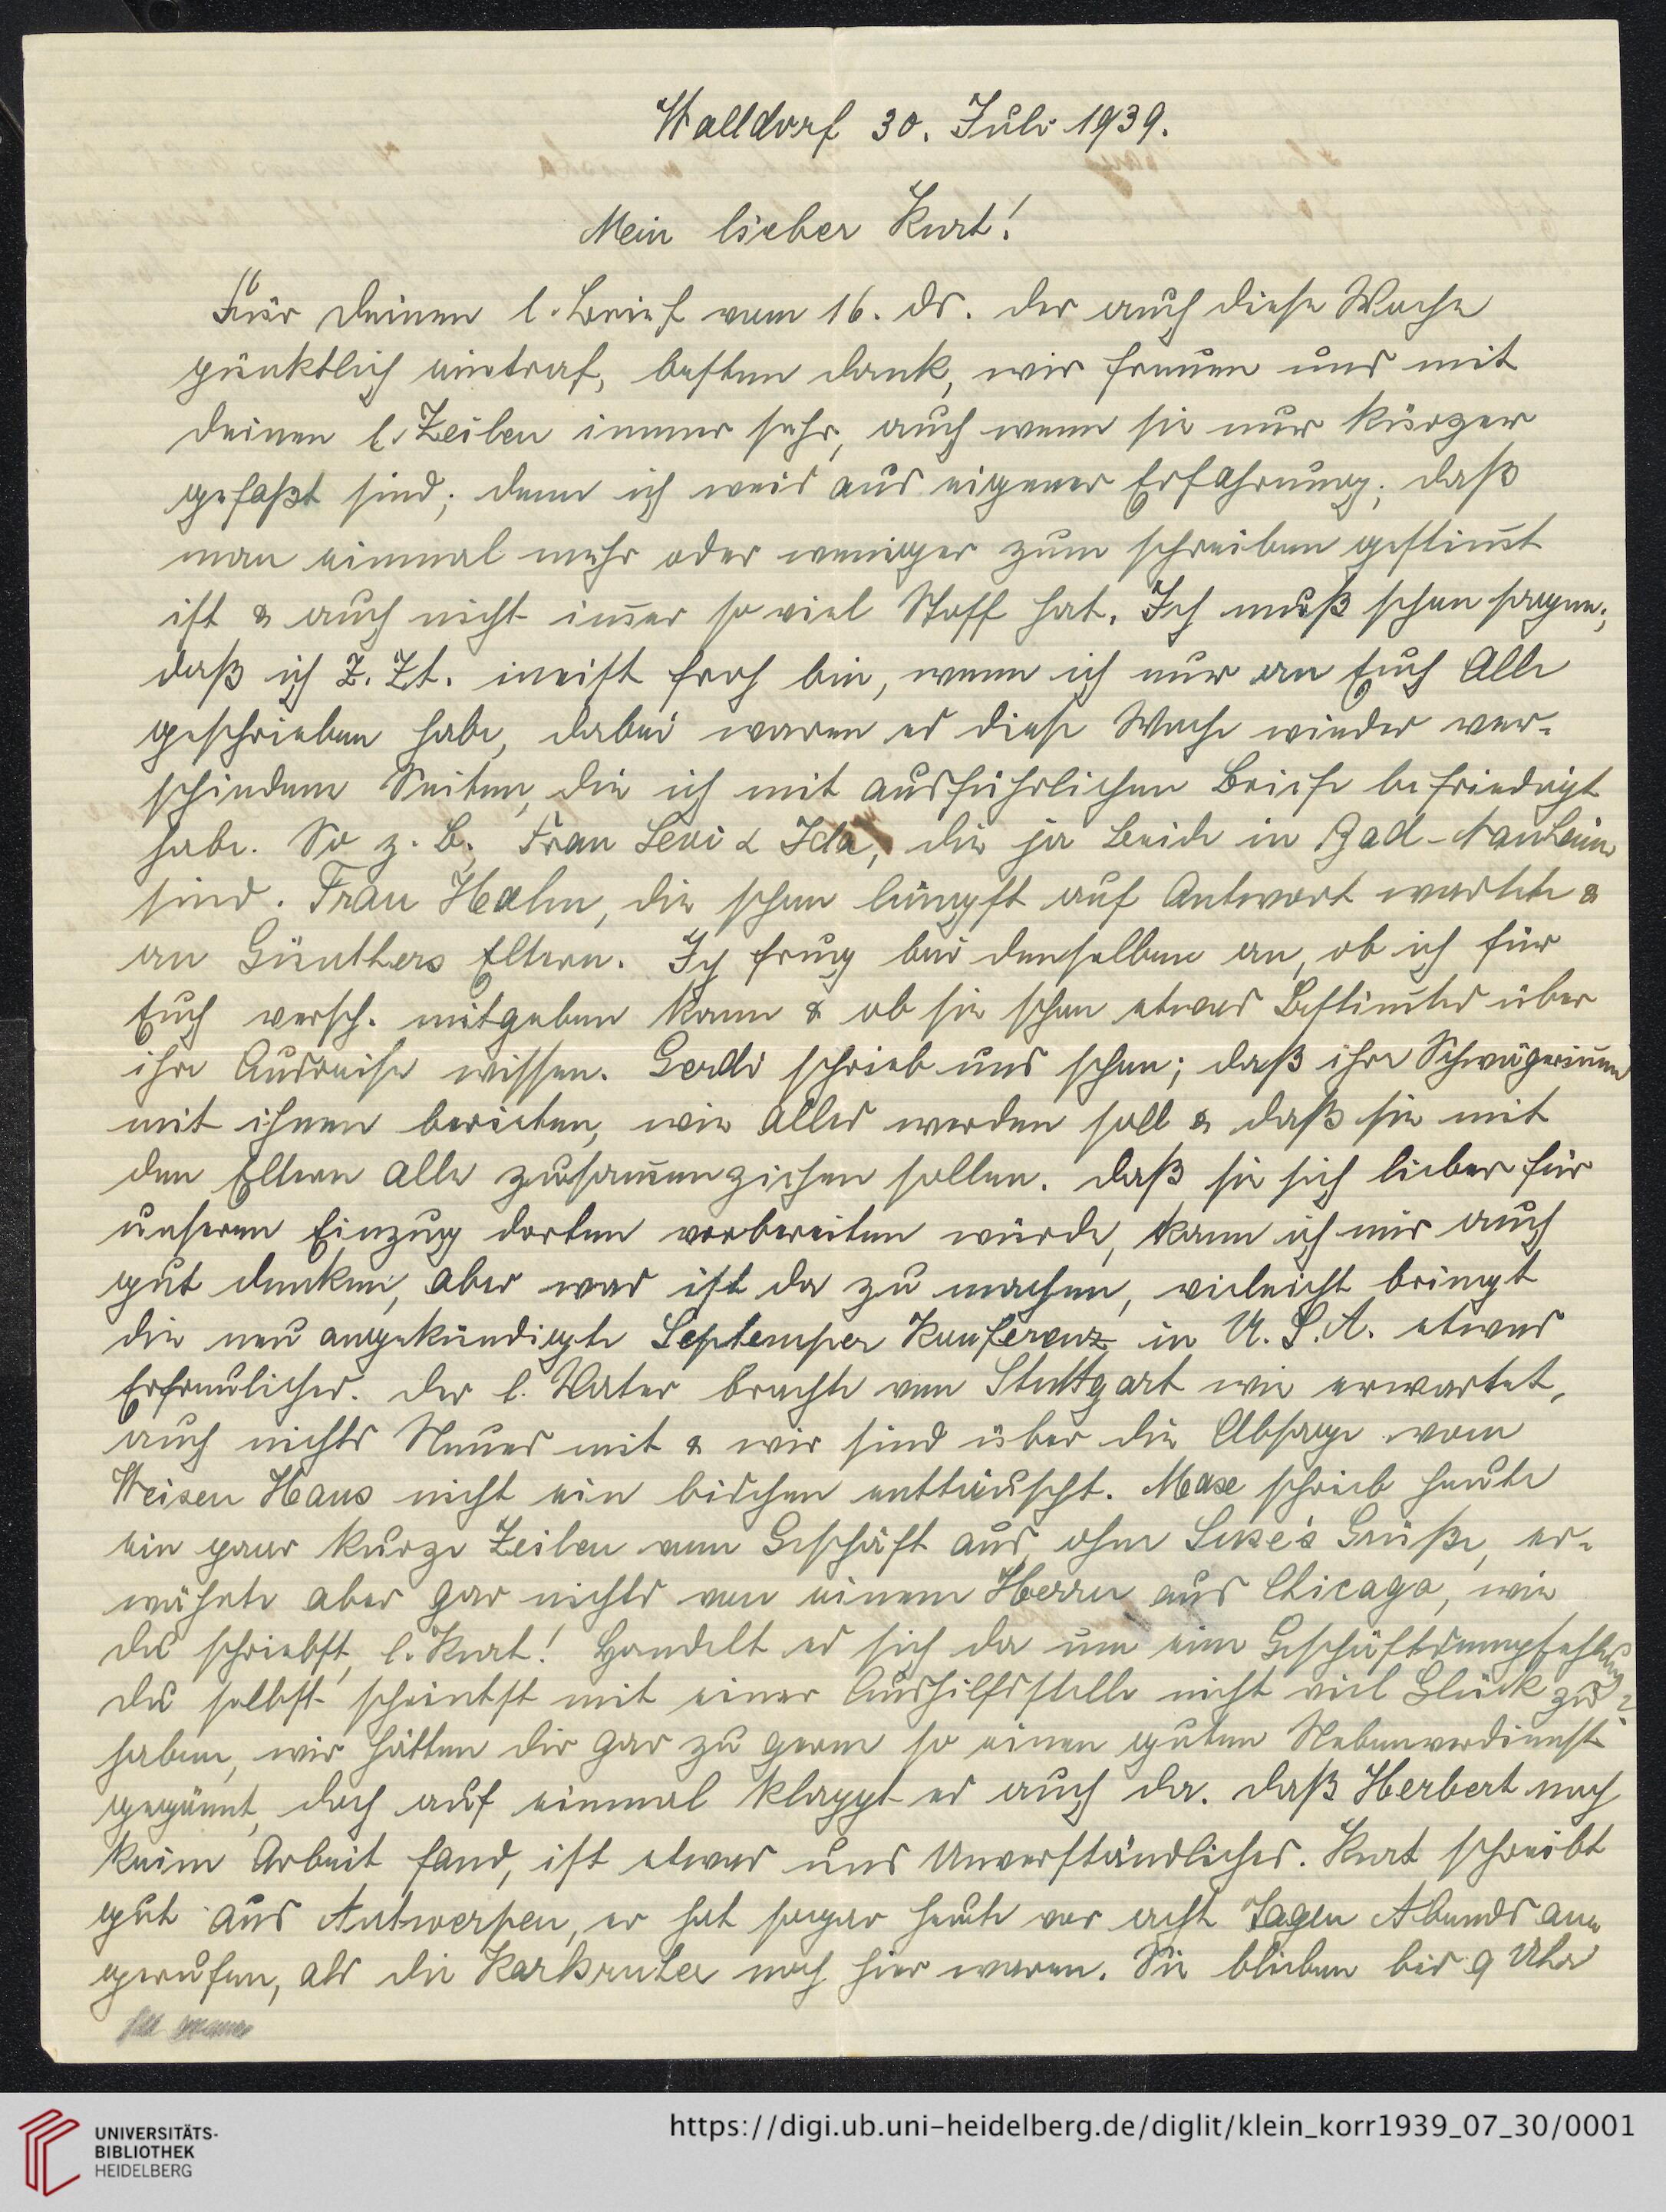 Walldorf 30. Juli 1939.
Mein lieber Kurt!
Für Deinen l. Brief vom 16. ds. der auch diese Woche
pünktlich eintraf, besten Dank, wir freuen uns mit
Deinen l. Zeilen immer sehr, auch wenn sie nur kürzer
gefaßt sind; denn ich weis aus eigener Erfahrung, daß
man einmal mehr oder weniger zum schreiben gestim̅t
ist & auch nicht im̅er so viel Stoff hat. Ich muß schon sagen,
daß ich z. Zt. meist froh bin, wenn ich nur an Euch Alle
geschrieben habe, dabei waren es diese Woche wieder ver-
schiedene Seiten, die ich mit ausführlichen Briefe befriedigt
habe. So z. B. Frau Levi & Ida, die ja beide in Bad-Nauheim
sind. Frau Hahn, die schon längst auf Antwort wartete &
an Günthers Eltern. Ich frug bei denselben an, ob ich für
Euch versch. mitgeben kann & ob sie schon etwas Bestim̅tes über
ihre Ausreise wissen. Gerdi schrieb uns schon; daß ihre Schwägerin̅en
mit ihnen berieten, wie Alles werden soll & daß sie mit
den Eltern alle zusam̅enziehen sollen. Daß sie sich lieber für
unseren Einzug dorten vorbereiten würde, kann ich mir auch
gut denken, aber was ist da zu machen, vieleicht bringt
die neu angekündigte Septemper Konferenz in U. S. A. etwas
Erfreulicher. Der l. Vater brachte von Stuttgart wie erwartet,
auch nichts Neues mit & wir sind über die Absage vom
Weisen Haus nicht ein bischen enttäuscht. Max schrieb heute
ein paar kurze Zeilen vom Geschäft aus, ohne Luxe's Grüße, er-
wähnte aber gar nichts von einem Herrn aus Chicago, wie
Du schriebst, l. Kurt! Handelt es sich da um eine Geschäftsempfehlung?
Du selbst scheintst mit einer Aushilfsstelle nicht viel Glück zu
haben, wir hätten Dir gar zu gerne so einen guten Nebenverdienst
gegönnt, doch auf einmal klappt es auch da. Daß Herbert noch
keine Arbeit fand, ist etwas uns Unverständliches. Kurt schreibt
gut aus Antwerpen, er hat sogar heute vor acht Tagen Abends an-
gerufen, als die Karlsruher noch hier waren. Sie blieben bis 9 Uhr
UNIVERSITÄTS-
BIBLIOTHEK
HEIDELBERG
https://digi.ub.uni-heidelberg.de/diglit/klein_korr1939_07_30/0001